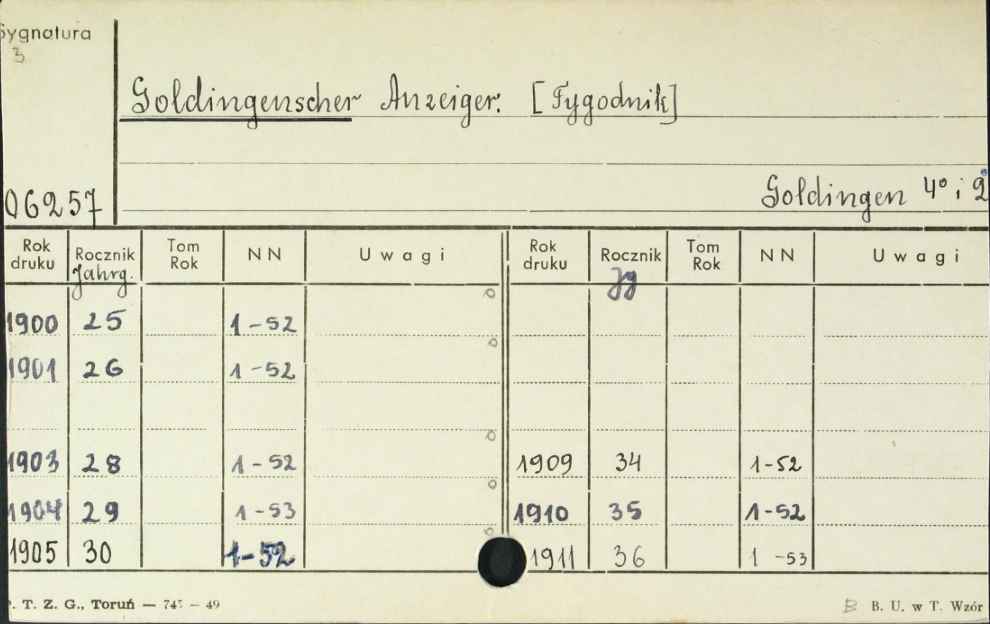 Sygnatura
3
Goldingenscher Anzeiger. [Tygodnik]
06257
Goldingen 4° i 2
Rok druku Rocznik Jahrg. Tom Rok NN Uwagi Rok druku Rocznik Jg Tom Rok NN Uwagi
1900 25 1-52
1901 26 1-52
1903 28 1-52 1909 34 1-52
1904 29 1-53 1910 35 1-52
1905 30 1-52 1911 36 1-53
. T. Z. G., Toruń — 745 — 49 B B. U. w T. Wzór